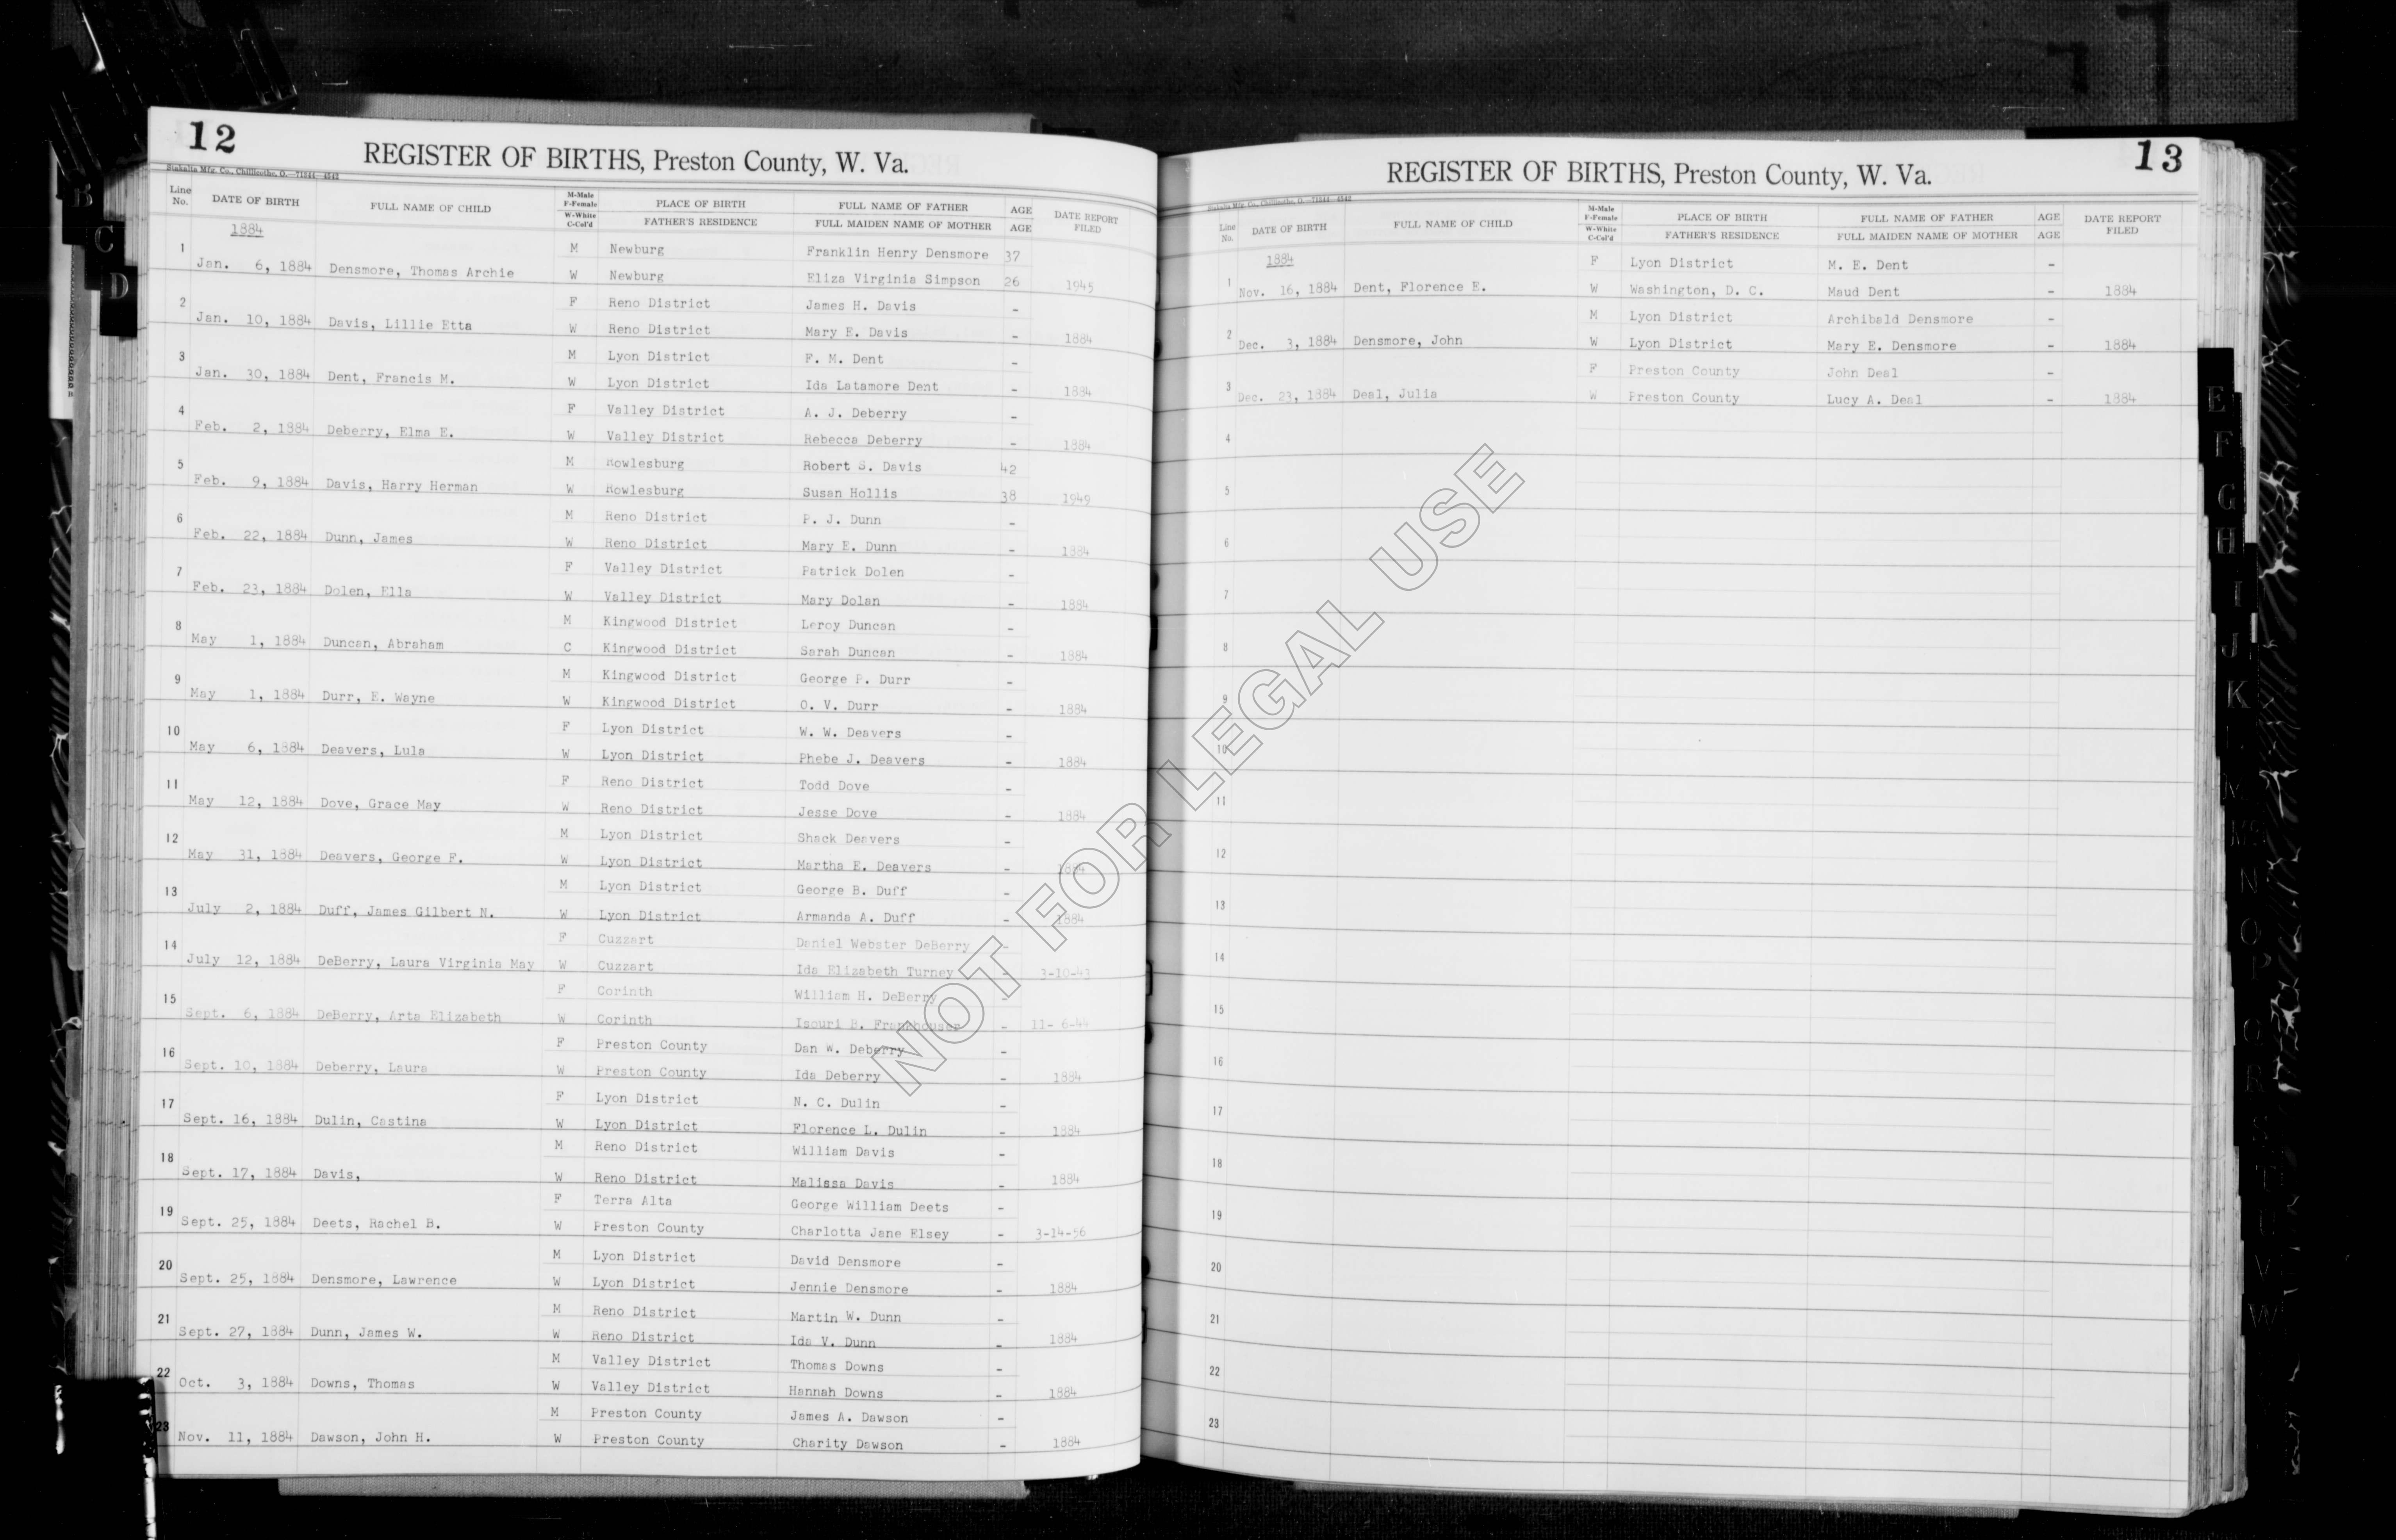 12
REGISTER OF BIRTHS, Preston County, W. Va.
Line No. DATE OF BIRTH FULL NAME OF CHILD M-Male F-Female W-White C-Col'd PLACE OF BIRTH FATHER'S RESIDENCE FULL NAME OF FATHER FULL MAIDEN NAME OF MOTHER AGE AGE DATE REPORT FILED
1884
1 M Newburg Franklin Henry Densmore 37
Jan. 6, 1884 Densmore, Thomas Archie W Newburg Eliza Virginia Simpson 26 1945
2 F Reno District James H. Davis -
Jan. 10, 1884 Davis, Lillie Etta W Reno District Mary E. Davis - 1884
3 M Lyon District F. M. Dent -
Jan. 30, 1884 Dent, Francis M. W Lyon District Ida Latamore Dent - 1884
4 F Valley District A. J. Deberry -
Feb. 2, 1884 Deberry, Elma E. W Valley District Rebecca Deberry - 1884
5 M Rowlesburg Robert S. Davis 42
Feb. 9, 1884 Davis, Harry Herman W Rowlesburg Susan Hollis 38 1949
6 M Reno District P. J. Dunn -
Feb. 22, 1884 Dunn, James W Reno District Mary E. Dunn - 1884
7 F Valley District Patrick Dolen -
Feb. 23, 1884 Dolen, Ella W Valley District Mary Dolan - 1884
8 M Kingwood District Leroy Duncan -
May 1, 1884 Duncan, Abraham C Kingwood District Sarah Duncan - 1884
9 M Kingwood District George P. Durr -
May 1, 1884 Durr, E. Wayne W Kingwood District O. V. Durr - 1884
10 F Lyon District W. W. Deavers -
May 6, 1884 Deavers, Lula W Lyon District Phebe J. Deavers - 1884
11 F Reno District Todd Dove -
May 12, 1884 Dove, Grace May W Reno District Jesse Dove - 1884
12 M Lyon District Shack Deavers -
May 31, 1884 Deavers, George F. W Lyon District Martha E. Deavers - 1884
13 M Lyon District George B. Duff -
July 2, 1884 Duff, James Gilbert N. W Lyon District Armanda A. Duff - 1884
14 F Cuzzart Daniel Webster DeBerry -
July 12, 1884 DeBerry, Laura Virginia May W Cuzzart Ida Elizabeth Turney - 3-10-43
15 F Corinth William H. DeBerry -
Sept. 6, 1884 DeBerry, Arta Elizabeth W Corinth Isouri B. Frankhouser - 11- 6-44
16 F Preston County Dan W. Deberry -
Sept. 10, 1884 Deberry, Laura W Preston County Ida Deberry - 1884
17 F Lyon District N. C. Dulin -
Sept. 16, 1884 Dulin, Castina W Lyon District Florence L. Dulin - 1884
18 M Reno District William Davis -
Sept. 17, 1884 Davis, W Reno District Malissa Davis - 1884
19 F Terra Alta George William Deets -
Sept. 25, 1884 Deets, Rachel B. W Preston County Charlotta Jane Elsey - 3-14-56
20 M Lyon District David Densmore -
Sept. 25, 1884 Densmore, Lawrence W Lyon District Jennie Densmore - 1884
21 M Reno District Martin W. Dunn -
Sept. 27, 1884 Dunn, James W. W Reno District Ida V. Dunn - 1884
22 M Valley District Thomas Downs -
Oct. 3, 1884 Downs, Thomas W Valley District Hannah Downs - 1884
23 M Preston County James A. Dawson -
Nov. 11, 1884 Dawson, John H. W Preston County Charity Dawson - 1884
13
REGISTER OF BIRTHS, Preston County, W. Va.
Line No. DATE OF BIRTH FULL NAME OF CHILD M-Male F-Female W-White C-Col'd PLACE OF BIRTH FATHER'S RESIDENCE FULL NAME OF FATHER FULL MAIDEN NAME OF MOTHER AGE AGE DATE REPORT FILED
1884
1 F Lyon District M. E. Dent -
Nov. 16, 1884 Dent, Florence E. W Washington, D. C. Maud Dent - 1884
2 M Lyon District Archibald Densmore -
Dec. 3, 1884 Densmore, John W Lyon District Mary E. Densmore - 1884
3 F Preston County John Deal -
Dec. 23, 1884 Deal, Julia W Preston County Lucy A. Deal - 1884
4
5
6
7
8
9
10
11
12
13
14
15
16
17
18
19
20
21
22
23
NOT FOR LEGAL USE
B
C
D
E
F
G
H
I
J
K